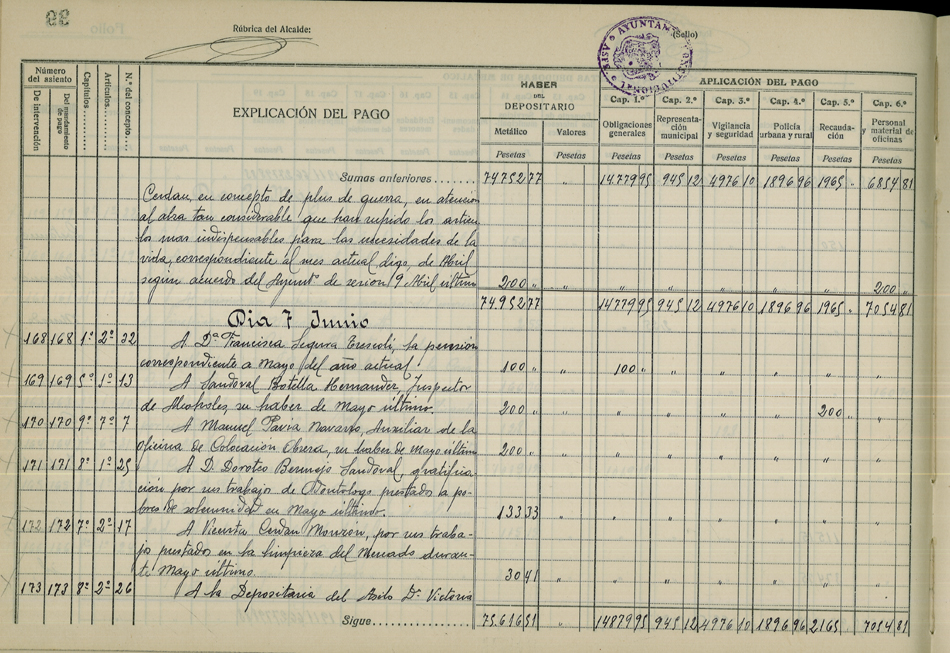 Rúbrica del Alcalde:
(Sello)
Número del asiento
De intervención
Del mandamiento de pago
Capítulos
Artículos
N.º del concepto
EXPLICACIÓN DEL PAGO
HABER DEL DEPOSITARIO
Metálico
Pesetas
Valores
Pesetas
APLICACIÓN DEL PAGO
Cap. 1.º Cap. 2.º Cap. 3.º Cap. 4.º Cap. 5.º Cap. 6.º
Obligaciones generales
Representación municipal
Vigilancia y seguridad
Policía urbana y rural
Recaudación
Personal y material de oficinas
Pesetas Pesetas Pesetas Pesetas Pesetas Pesetas
Sumas anteriores........ 74752 77 " 14779 95 945 12 4976 10 1896 96 1965 " 6854 81
Cerdan, en concepto de plus de guerra, en atencion
al alza tan considerable que han sufrido los articu-
los mas indispensables para las necesidades de la
vida, correspondiente al mes actual digo, de Abril
según acuerdo del Ayuntº de sesion 9 Abril último 200 " " " " " " " 200 "
74952 77 " 14779 95 945 12 4976 10 1896 96 1965 " 7054 81
Dia 7 Junio
168 168 1º 2º 32 A Dª Francisca Segura, la pensión
correspondiente a Mayo del año actual. 100 " " 100 " " " " " "
169 169 5º 1º 13 A Sandoval Botella Hernandez, Inspector
de Alcoholes, su haber de Mayo último. 200 " " " " " " 200 " "
170 170 9º 7º 7 A Manuel Pavia Navarro, Auxiliar de la
oficina de Colocación Obrera, su haber de Mayo último 200 " " " " " " " "
171 171 8º 1º 25 A D. Doroteo Bermejo Sandoval, gratifica-
ción por sus trabajos de Odontologo prestados a po-
bres de solemnidad en Mayo último. 133 33 " " " " " " "
172 172 7º 2º 17 A Vicenta Cerdan Monzón, por sus traba-
jos prestados en la limpieza del Mercado duran-
te Mayo último. 30 41 " " " " " " "
173 173 8º 2º 26 A la Depositaria del Asilo Dª Victoria
Sigue................ 75.616 51 " 14879 95 945 12 4976 10 1896 96 2165 " 7054 81